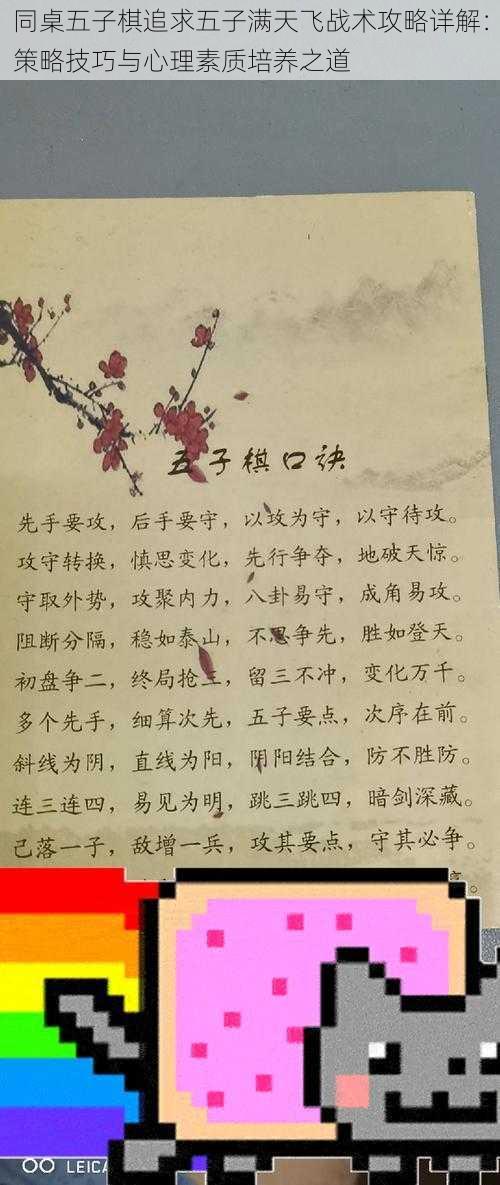 同桌五子棋追求五子满天飞战术攻略详解：
策略技巧与心理素质培养之道
五子棋口诀
先手要攻，后手要守，以攻为守，以守待攻。
攻守转换，慎思变化，先行争夺，地破天惊。
守取外势，攻聚内力，八卦易守，成角易攻。
阻断分隔，稳如泰山，不思争先，胜如登天。
初盘争二，终局抢三，留三不冲，变化万千。
多个先手，细算次先，五子要点，次序在前。
斜线为阴，直线为阳，阴阳结合，防不胜防。
连三连四，易见为明，跳三跳四，暗剑深藏。
己落一子，敌增一兵，攻其要点，守其必争。
LEICA